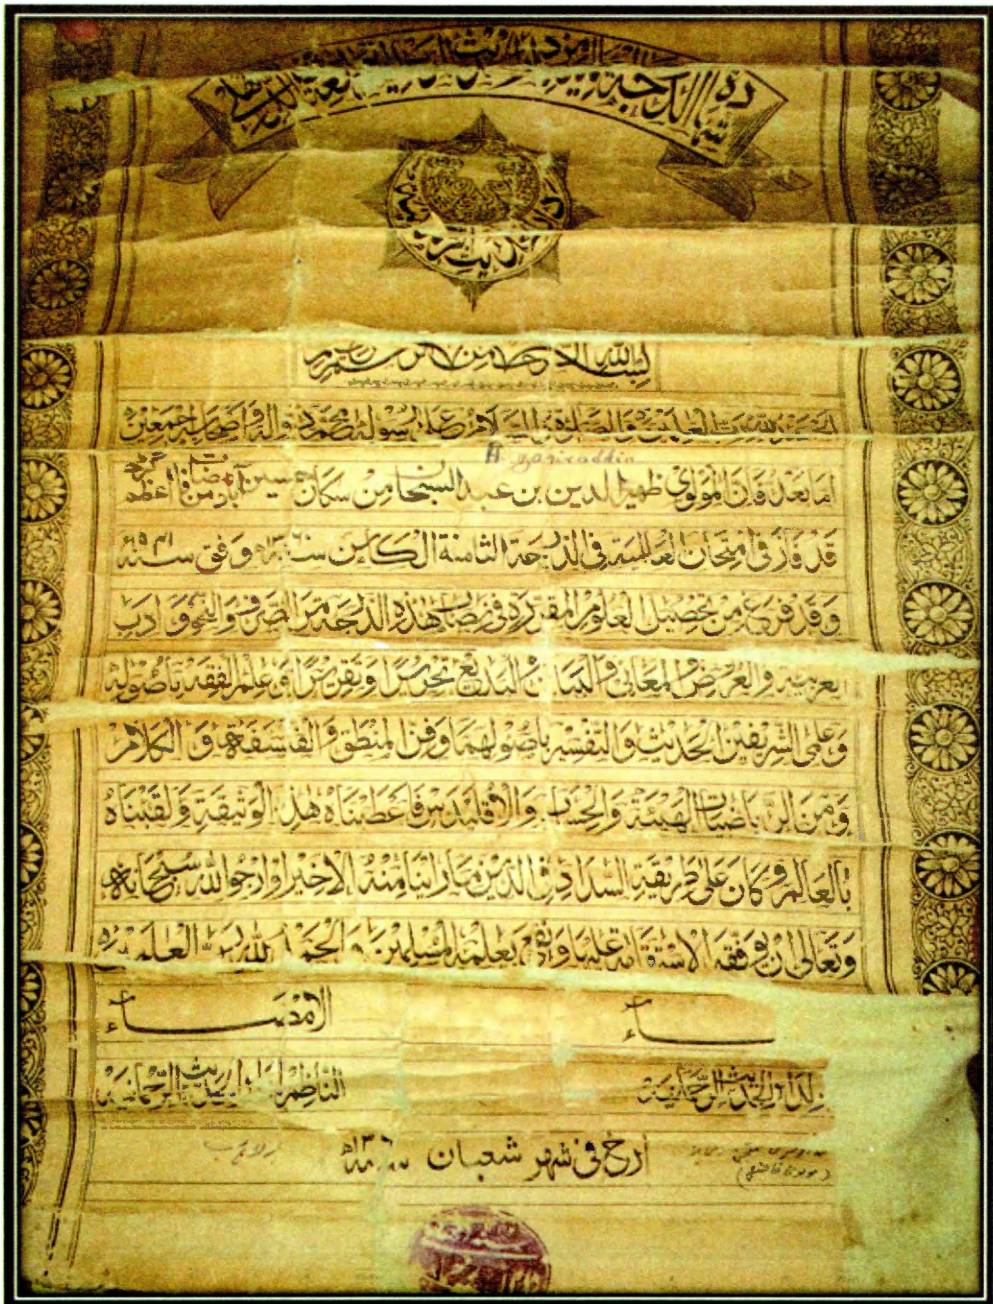 شهادة الدرجة
دار الحديث الرحمانية
بسم الله الرحمن الرحيم
الحمد لله رب العلمين والصلوة والسلام على رسوله محمد واله واصحابه اجمعين
H. Zahiraddin
اما بعد فان المولوي ظهير الدين بن عبد السبحان من سكان حسين آباد من اعظم گڑھ
قد فاز فى امتحان العالمية فى الدرجة الثامنة الكائن سنة ١٣٦٠ھ وفق سنة ١٩٤١م
وقد فرغ من تحصيل العلوم المقررة فى نصاب هذه الدرجة من الصرف والنحو وادب
العربية والعروض والمعانى والبيان والبديع وعلم الفقه باصوله
وعلمى الشريفين الحديث والتفسير باصولهما وفن المنطق والفلسفة والكلام
ومن الرياضيات الهيئة والحساب والاقليدس فاعطيناه هذه الوثيقة ولقبناه
بالعالم وكان على طريقة السداد فى الدين ما راينا منه الا خيرا وارجو الله سبحانه
وتعالى ان يوفقه الاستقامة عليها وينفع بعلمه المسلمين والحمد لله رب العلمين
الامضاء
لدار الحديث الرحمانية
الناظم لدار الحديث الرحمانية
ارخ فى شهر شعبان ١٣٦٠ھ